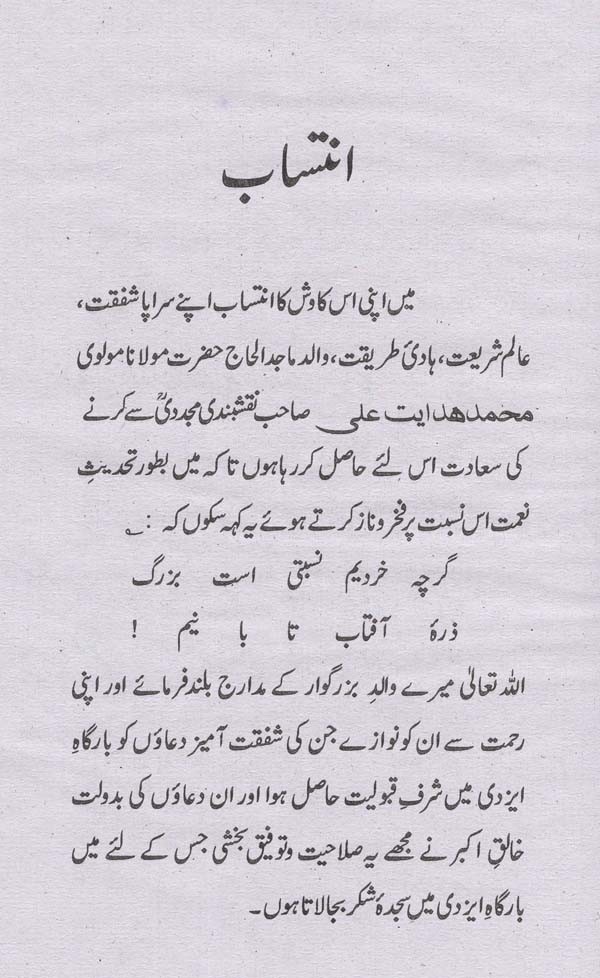 انتساب
میں اپنی اس کاوش کا انتساب اپنے سراپا شفقت،
عالم شریعت، ہادیٔ طریقت، والد ماجد الحاج حضرت مولانا مولوی
محمد ھدایت علی صاحب نقشبندی مجددیؒ سے کرنے
کی سعادت اس لئے حاصل کر رہا ہوں تاکہ میں بطور تحدیثِ
نعمت اس نسبت پر فخر و ناز کرتے ہوئے یہ کہہ سکوں کہ : ؎
گرچہ خردیم نسبتی است بزرگ
ذرۂ آفتاب تا با نیم !
اللہ تعالیٰ میرے والدِ بزرگوار کے مدارج بلند فرمائے اور اپنی
رحمت سے ان کو نوازے جن کی شفقت آمیز دعاؤں کو بارگاہِ
ایزدی میں شرفِ قبولیت حاصل ہوا اور ان دعاؤں کی بدولت
خالقِ اکبر نے مجھے یہ صلاحیت و توفیق بخشی جس کے لئے میں
بارگاہِ ایزدی میں سجدۂ شکر بجا لاتا ہوں۔